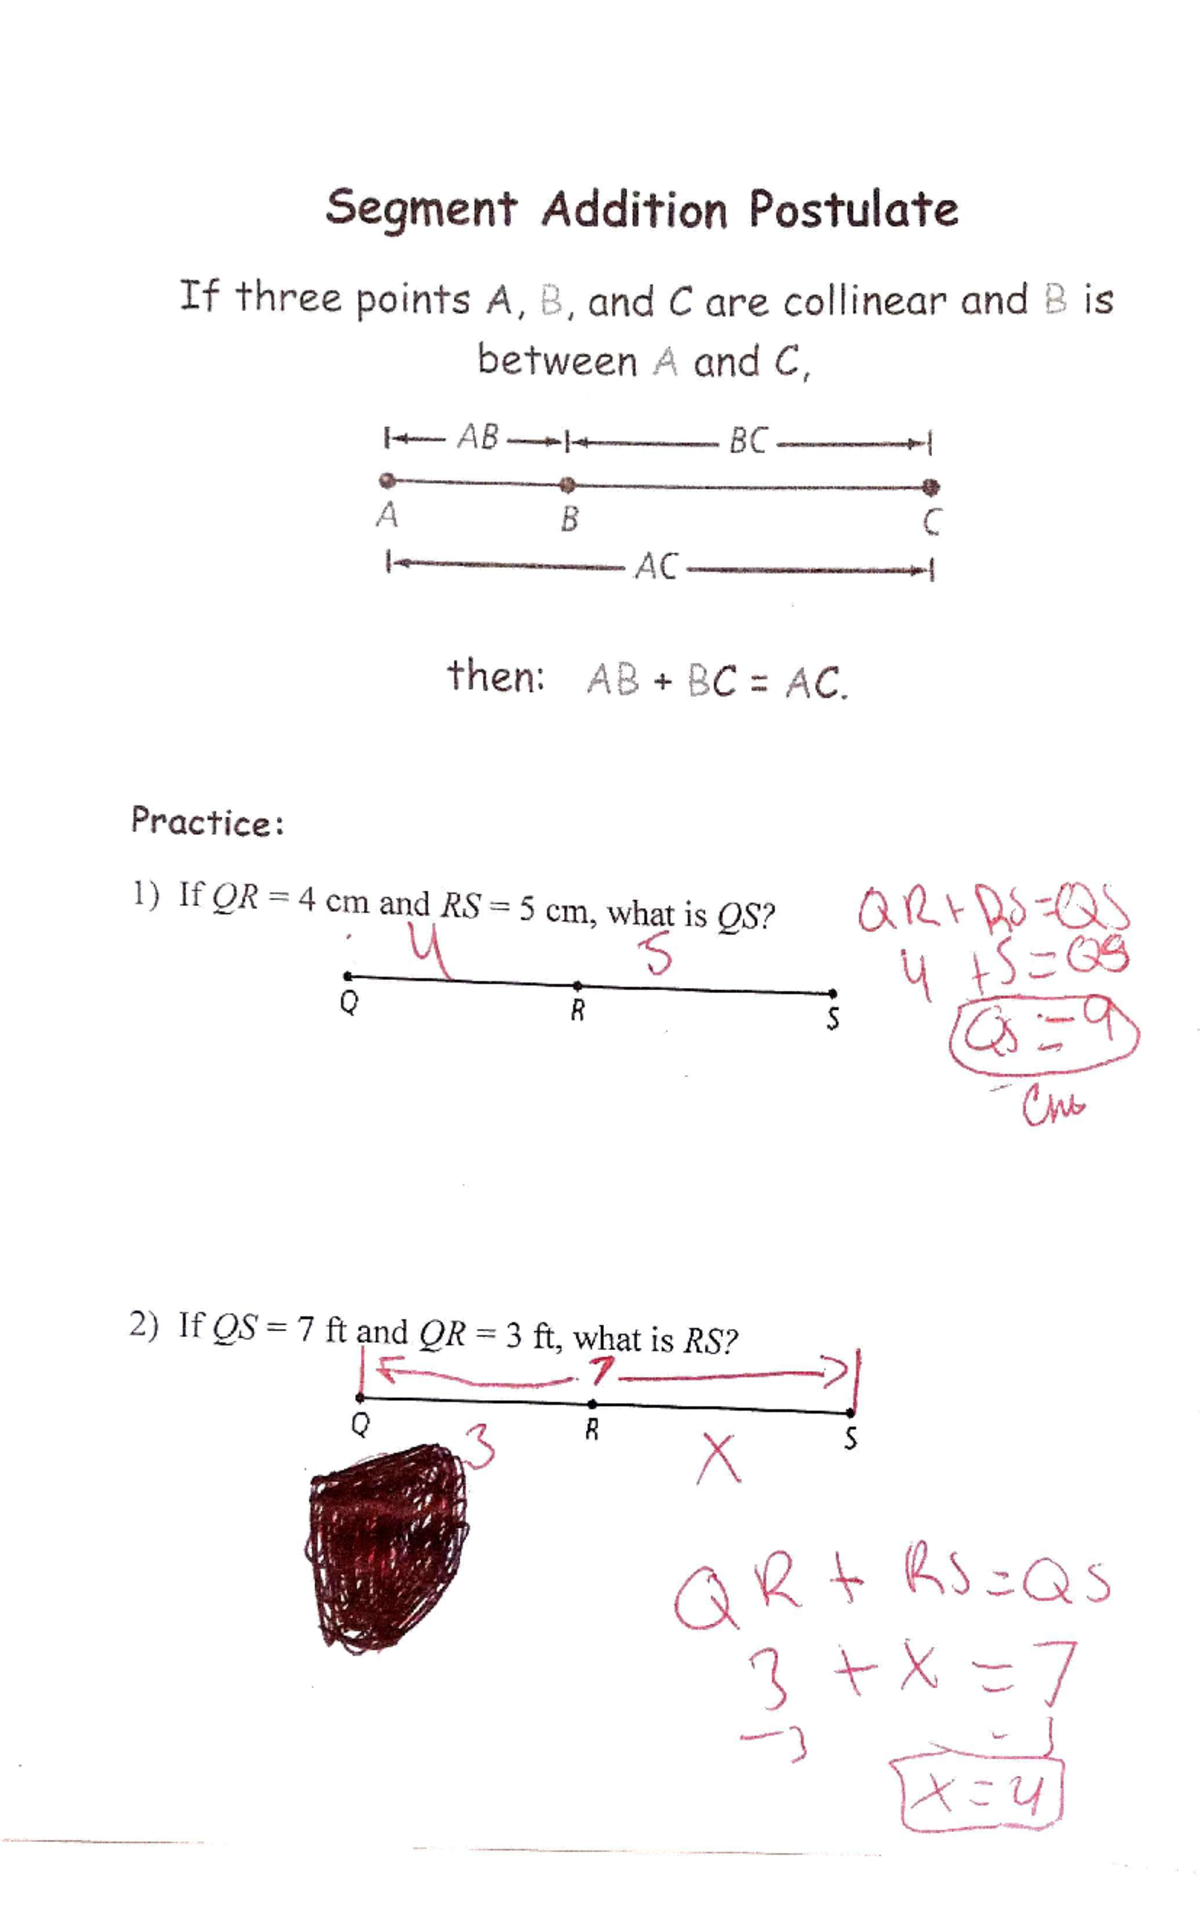 Segment Addition Postulate
If three points A, B, and C are collinear and B is
between A and C,
AB BC
A B C
AC
then: AB + BC = AC.
Practice:
1) If QR = 4 cm and RS = 5 cm, what is QS?
QR + RS = QS
4 5
4 + 5 = QS
Q R S
QS = 9
cm
2) If QS = 7 ft and QR = 3 ft, what is RS?
7
Q R S
3 X
QR + RS = QS
3 + X = 7
-3 - 3
X = 4